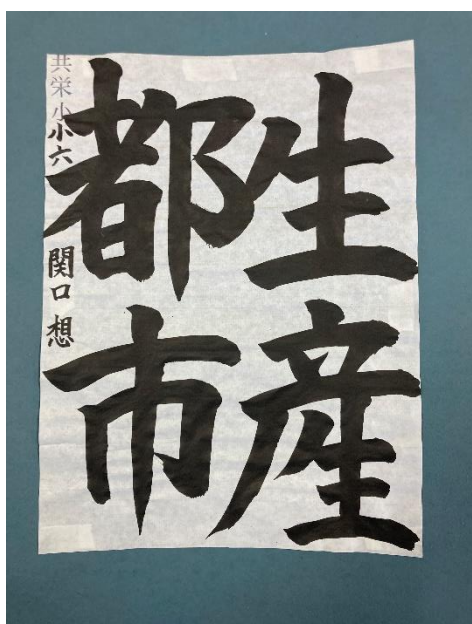 生産
都市
共栄小小六 関口想